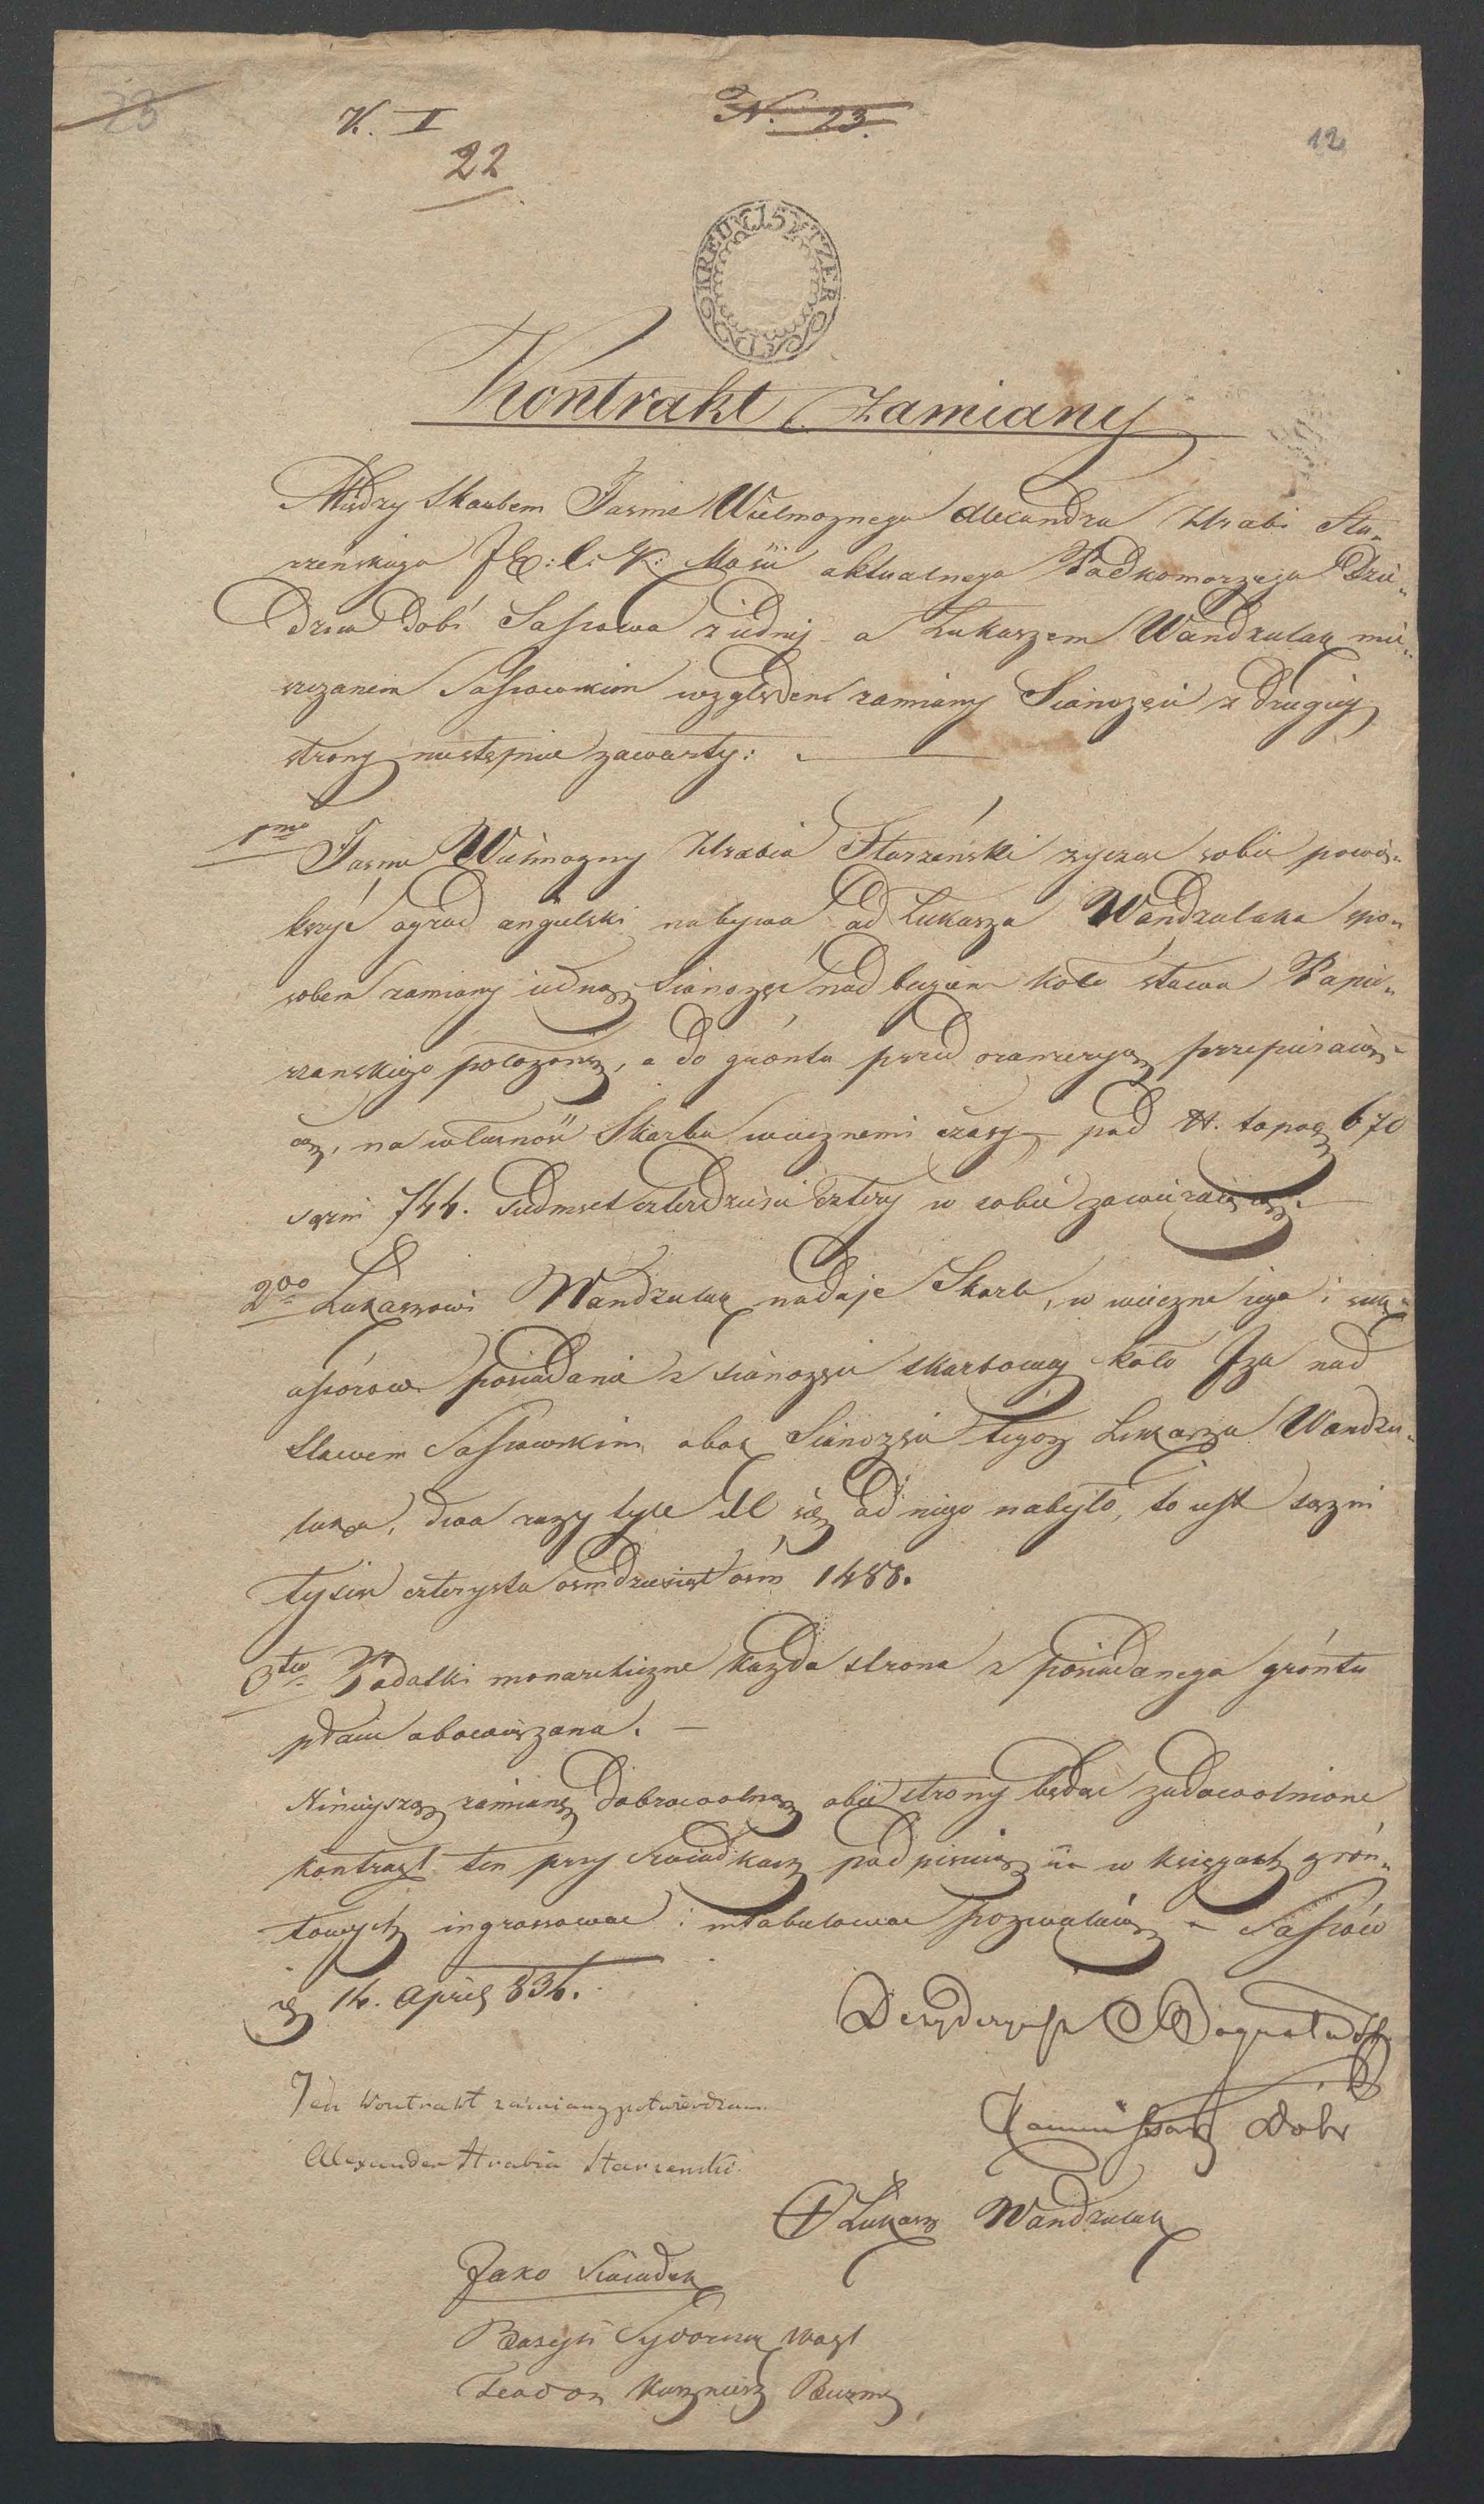 23
K. I
N. 23.
22
12
15 KREUTZER
Kontrakt Zamiany
Między Skarbem Jasnie Wielmoznego Alexandra Hrabi Sta„
rzenskiego J C: K: Mości aktualnego Podkomorzego Dzie„
dzica Dobr Sassowa z iedniy a Lukaszem Wandzulak mie„
szczanem Sassowskim względem zamiany Sianożęci z drugiey
strony nastempnie zawarty:
1mo Jasnie Wielmozny Hrabia Starzeński zycząc sobie powię„
kszyć ogrod angielski nabywa od Lukasza Wandzulaka spo„
sobem zamiany iednę Sianożęć nad bugiem koło stawu Papie„
rzanskiego połozoną, a do gróntu przed oranzeryą przepieraiąc„
cą, na własność Skarbu wiecznemi czasy pod N. topog 670
sązni 744. siedmset czterdzieści cztery w sobie zawieraiącą.
2do Lukaszowi Wandzulak nadaje Skarb, w wieczne iego i suk„
cessorow posiadanie z sianożęci skarbowey koło Iza nad
Stawem Sassowskim obok Sianożęci tegoz Lukasza Wandzu„
laka, dwa razy tyle ile się od niego nabyło, to iest sązni
tysiąc czterysta osmdziesiąt ośm 1488.
3tio Podatki monarchiczne kazda strona z posiadanego gróntu
płacić obowiązana.
Ninieyszą zamianę dobrowolną obie strony będąc zadowolnione
kontrakt ten przy świadkach podpisuią i w księgach grón„
towych ingrossować i intabulować pozwalaią – Sassów
d 14. April 834.
Dezyderyusz Bogusła
Kommissarz Dobr
Ten Kontrakt zamiany potwierdzam
Alexander Hrabia Starzenski.
+ Lukasz Wandzulak
Jako Swiadek
Bazyli Sydoruk Woyt
Teodor Kuznierz Burm